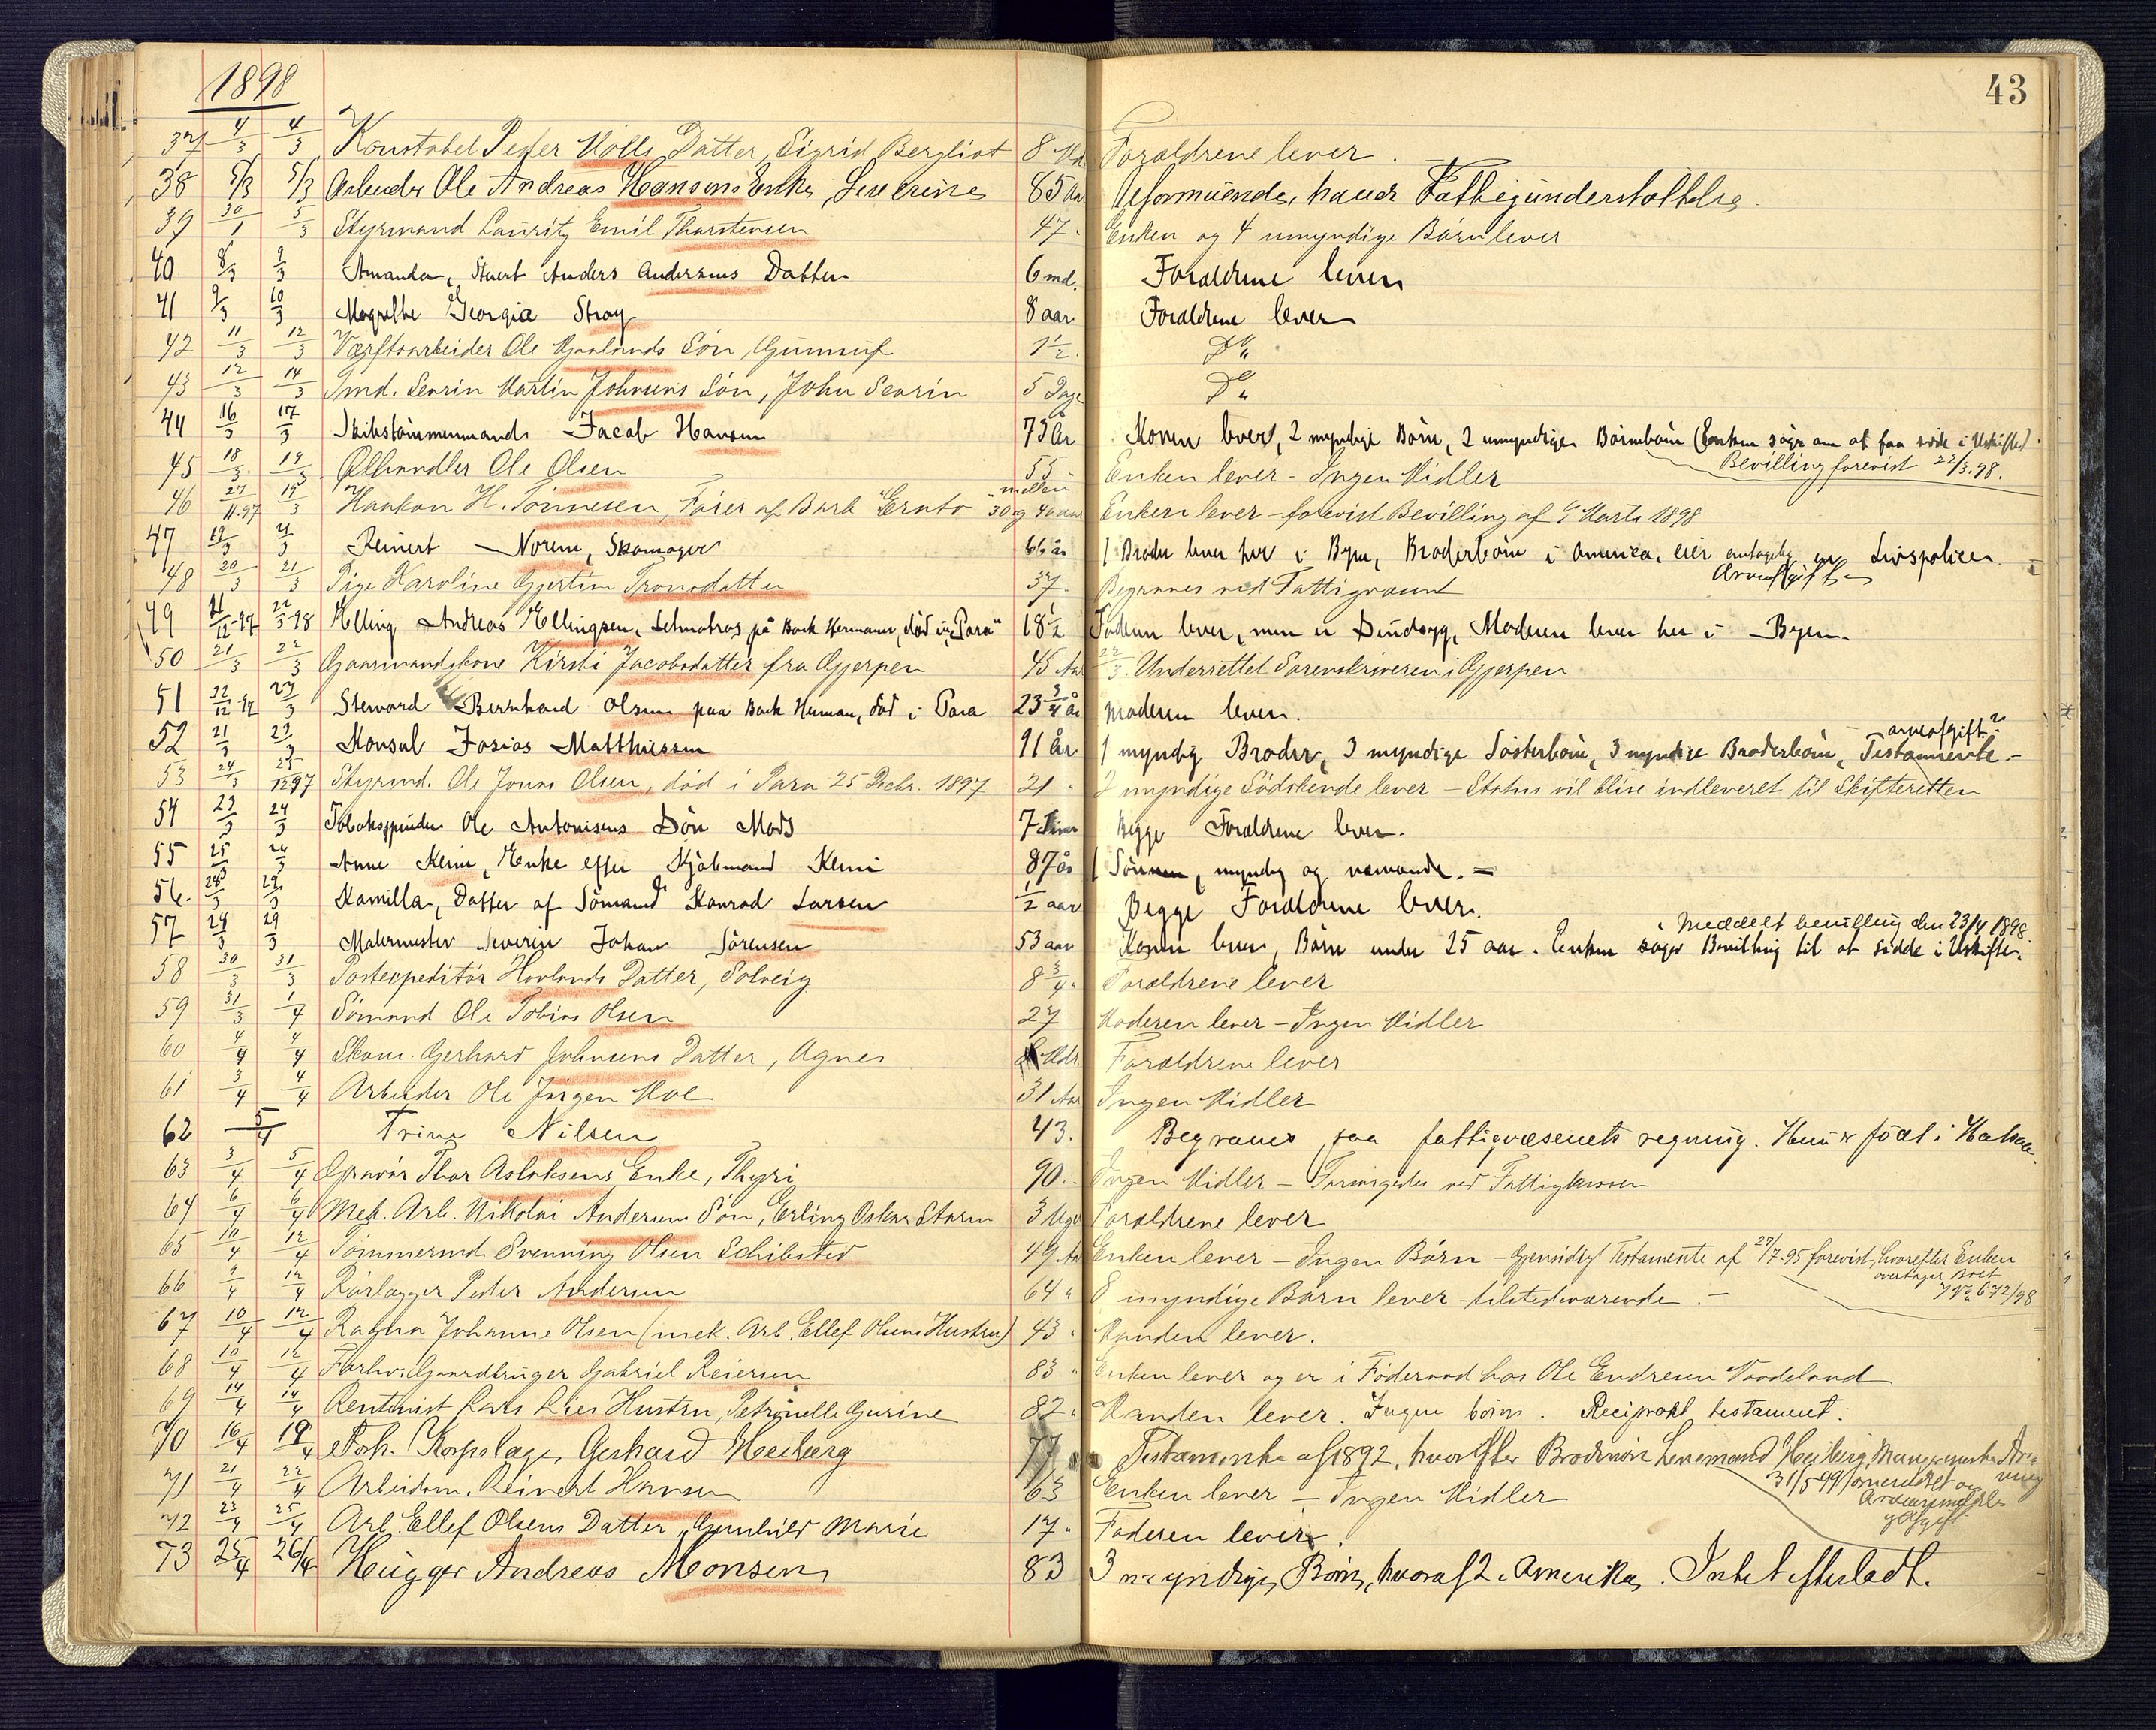 1898
43
37 4/3 4/3 Konstabel Peder Mölls Datter, Sigrid Bergliot 8 Md Forældrene lever.
38 5/3 5/3 Arbeider Ole Andreas Hansens Enke, Severine 85 Aar Uformuende, haver Fattigunderstøttelse.
39 30/1 5/3 Styrmand Lauritz Emil Thorstensen 47 " Enken og 4 umyndige Börn lever
40 8/3 9/3 Amanda, Stuert Anders Andersens Datter 6 md. Forældrene lever
41 9/3 10/3 Magrethe Georgia Stray 8 aar Forældrene lever
42 11/3 12/3 Værftsarbeider Ole Søn, Gunnuf 1 1/2 " Do "
43 12/3 14/3 Smd. Sevrin Martin Johnsens Sön, John Sevrin 5 Dage Do "
44 16/3 17/3 Skibstömmermand Jacob Hansen 73 År Konen lever, 2 myndige Börn, 2 umyndige Börnebörn (Enken söger om at faa sidde i Uskiftet)
Bevilling forevist 22/3.98.
45 18/3 19/3 Ölhandler Ole Olsen 55 " Enken lever - Ingen Midler
46 27/11.97 19/3 Haakon H. Tönnesen, Förer af Bark "Ernto" mellem 30 og 40 aar Enken lever - forevist Bevilling af 9 Marts 1898
47 19/3 21/3 Reinert Norem, Skomager 66 år 1 Broder lever her i Byen, Broderbörn i America, eier antagelig en Livspolice.
Arveafgift
48 20/3 21/3 Pige Karoline Gjertine Tronsdatter 37 " Begraves ved Fattigvæsenet
49 11/12-97 22/3-98 Elling Andreas Ellingsen, Letmatros på Bark Herman, död i "Para" 18 1/2 Faderen lever, men er Sindsyg, Moderen lever her i Byen.
50 21/3 22/3 Gaarmandskone Kirsti Jacobsdatter fra Gjerpen 45 Aar 22/3. Underrettet Sorenskriveren i Gjerpen
51 22/12-97 23/3 Steward Bernhard Olsen paa Bark Herman, död i Para 23 3/4 år Moderen lever.
arveafgift
52 21/3 23/3 Konsul Josias Matthiesen 91 år 1 myndig Broder, 3 myndige Søsterbörn, 3 myndige Broderbörn, Testamente.-
53 24/3 25/12 97 Styrmd. Ole Jonas Olsen, död i Para 25 Decbr. 1897 21 " 2 myndige Södskende lever - Status vil blive indleveret til Skifteretten
54 23/3 24/3 Tobakspinder Ole Antonisens Sön Mads 7 Timer Begge Forældrene lever.
55 25/3 26/3 Anne Klem, Enke efter Kjöbmand Klem 87 år 1 Sön, myndig og nærværende. -
56. 28/3 29/3 Kamilla, Datter af Sömand Konrad Larsen 1/2 aar Begge Forældrene lever.
Meddelt bevilling den 23/4 1898.
57 28/3 29/3 Malermester Severin Johan Sörensen 53 aar Konen lever, Börn under 25 aar. Enken söger Bevilling til at sidde i Uskifte.
58 30/3 31/3 Postexpeditör Hovlands Datter, Solveig 8 3/4 " Forældrene lever
59 31/3 1/4 Sömand Ole Tobias Olsen 27 Moderen lever - Ingen Midler
60 4/4 4/4 Skom. Gerhard Johnsens Datter, Agnes Mdr. Forældrene lever
61 3/4 4/4 Arbeider Ole Jörgen Moe 31 Aar Ingen Midler
62 5/4 Trine Nilsen 43. Begraves paa fattigvæsenets regning. Hun er född i
63 3/4 5/4 Gravör Thor Aslaksens Enke, Thyri 90 " Ingen Midler - Forsörgedes ved Fattigkassen
64 6/4 6/4 Mek. Arb. Nikolai Andersens Sön, Erling Oskar Storm 3 Uger Forældrene lever
65 10/4 12/4 Tömmermd. Svenning Olsen Schibsted 49 Aar Enken lever - Ingen Börn - Gjensidigt Testamente af 27/7-95 forevist, hvorefter Enken
overtager Boet
66 9/4 12/4 Rörlægger Peder Andersen 64 " 8 myndige Börn lever - tilstedeværende. -
67 10/4 12/4 Ragna Johanne Olsen (mek. Arb. Ellef Olsens Hustru) 43 " Manden lever.
68 10/4 12/4 Forhv. Gaardbruger Gabriel Reiersen 83 " Enken lever og er i Föderaad hos Ole Endresen Vordeland
69 14/4 14/4 Rentenist Lars Lies Hustru, Petronelle Gurine 82 " Manden lever. Ingen börn. Reciprokt testament.
70 16/4 19/4 Forh. Korpslæge, Gerhard Heiberg 77 Testamente af 1892, hvorefter Brodersön Lensmand Heiberg,
31/5 99
71 21/4 22/4 Arbeidsm. Reinert Hansen 63 Enken lever - Ingen Midler
72 23/4 25/4 Arb. Ellef Olsens Datter, Gunhild Marie 17 " Faderen lever.
73 25/4 26/4 Hugger Andreas Monsen 83 3 myndige Börn, hvoraf 2 i Amerika. Intet efterladt.